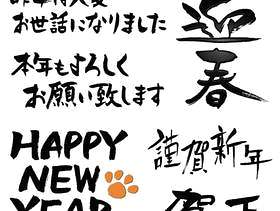 お世話になりました
本年もよろしく
お願い致します
迎春
謹賀新年
HAPPY
NEW
YEAR